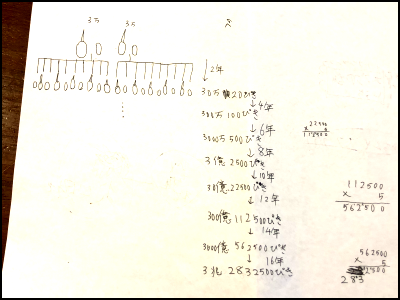 3万 3万
↓2年
30万 20ぴき
↓4年
300万 100ぴき
↓6年
3000万 500ぴき
↓8年
3億 2500ぴき
↓10年
30億 22500ぴき
↓12年
300億 112500ぴき
↓14年
3000億 562500ぴき
↓16年
3兆 2832500ぴき
22500
×
112500
112500
× 5
562500
562500
× 5
2500
283